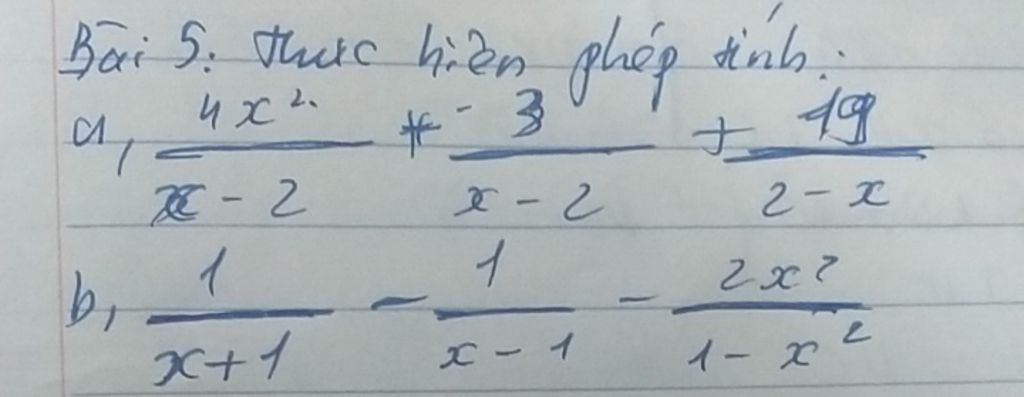 Bài 5: thực hiện phép tính:
a, 4x²/(x - 2) + -3/(x - 2) + 19/(2 - x)
b, 1/(x+1) - 1/(x - 1) - 2x²/(1 - x²)